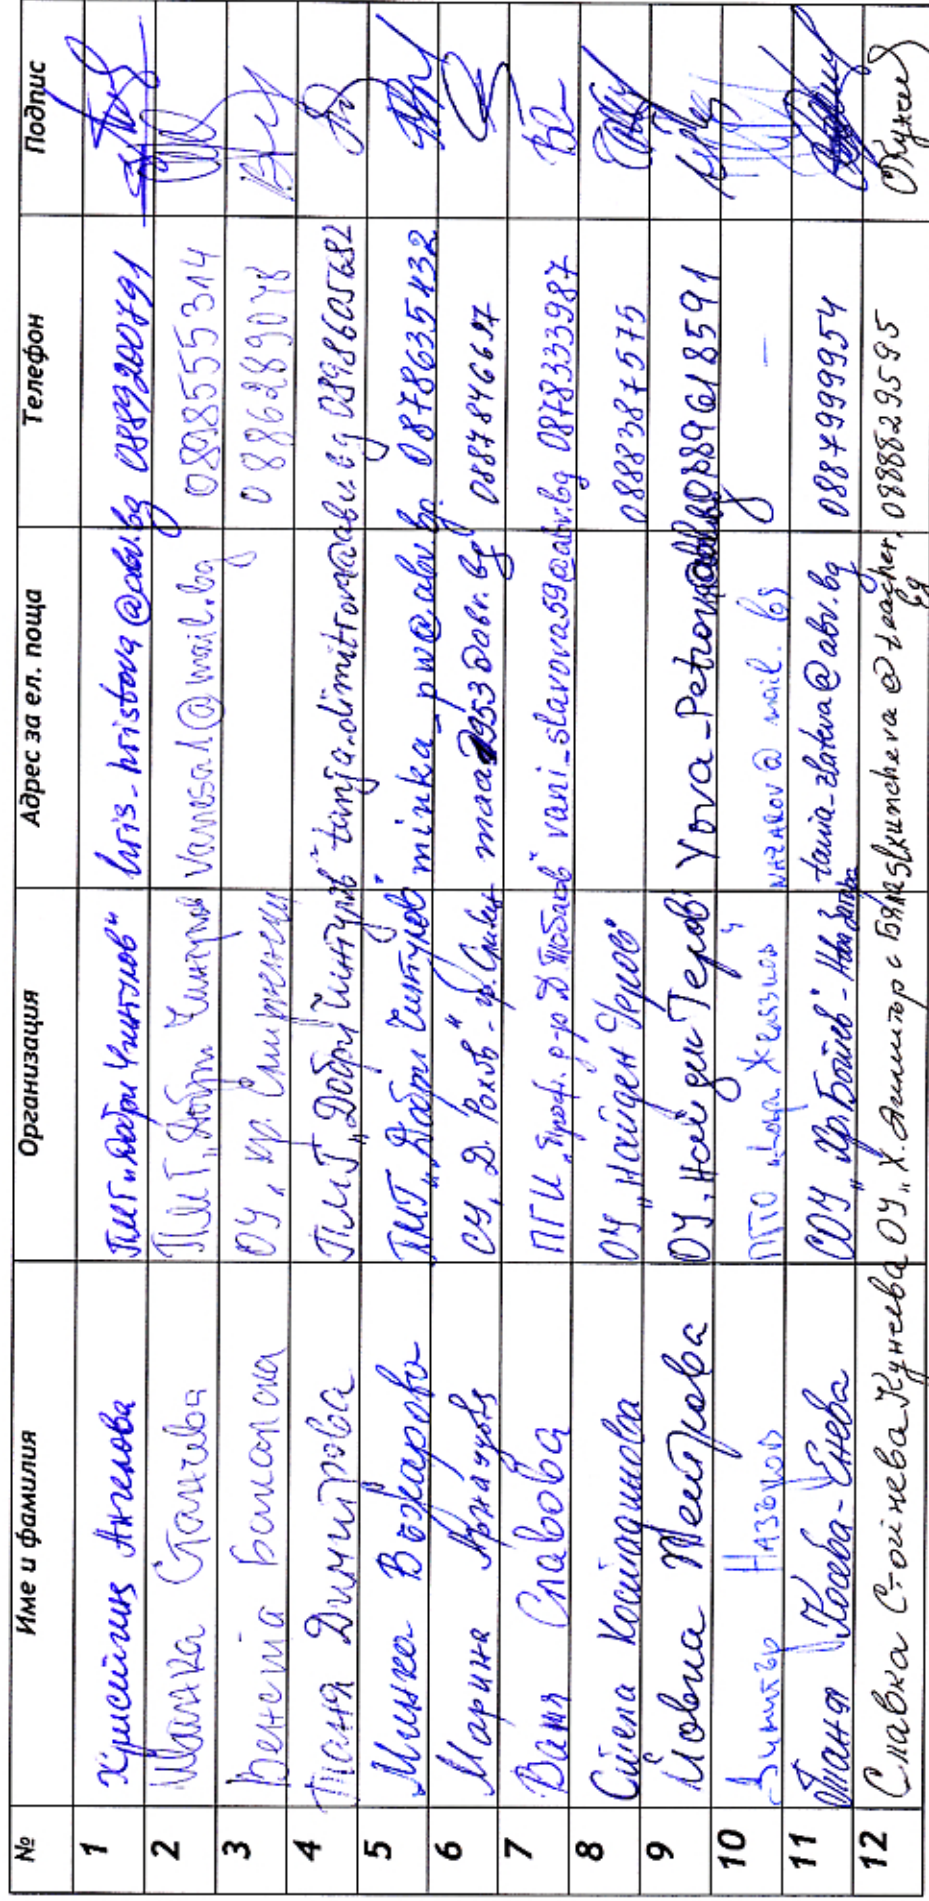 № Име и фамилия Организация Адрес за ел. поща Телефон Подпис
1 Христина Ангелова ПМГ „Добри Чинтулов“ hris_hristova@abv.bg 0889200791
2 Станчева ПМГ „Добри Чинтулов vanesa1@mail.bg 0898555314
3 Венета ОУ „Хр. Смирненски 0886289048
4 Таня Димитрова ПМГ „Добри Чинтулов“ tanja.dimitrova@abv.bg 0898605682
5 Минка Вожарова ПМГ „Добри Чинтулов“ minka_pw@abv.bg 0878635432
6 Марина СУ „Д. Рохов“ - гр. Сливен 0887846697
7 Ваня Славова ПГИ „Проф. д-р Д. Табаков“ vani_slavova59@abv.bg 0878333987
8 Стела Костадинова ОУ „Найден Геров“ 0888387575
9 Йовна Петрова ОУ „Найден Геров“ Yovna_Petrova@abv.bg 089618591
10 Назъров NAZAROV@mail.bg —
11 Таня Косева-Енева СОУ „Хр. Ботев“ - Нова Загора tania_zlateva@abv.bg 0887999954
12 Славка Стойнева Кунчева ОУ „Х. Димитър с Бяла slkuncheva@teacher.bg 0888829595